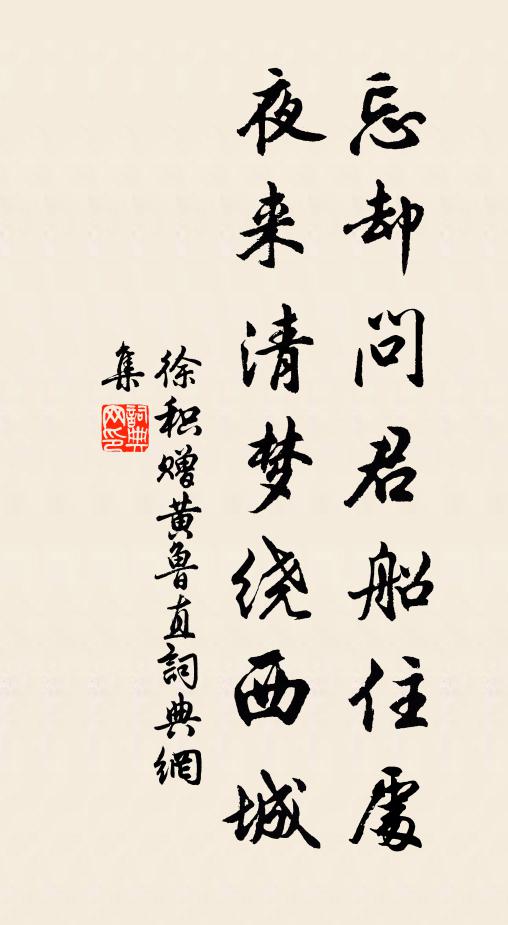 忘却问君船住處
夜来清梦绕西城
徐积赠黄鲁直詞典網
集
詞典
网印